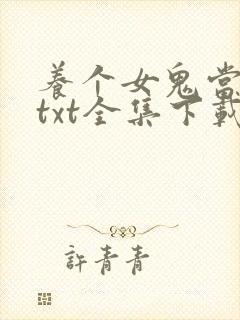 養个女鬼當
txt全集下載
許青青